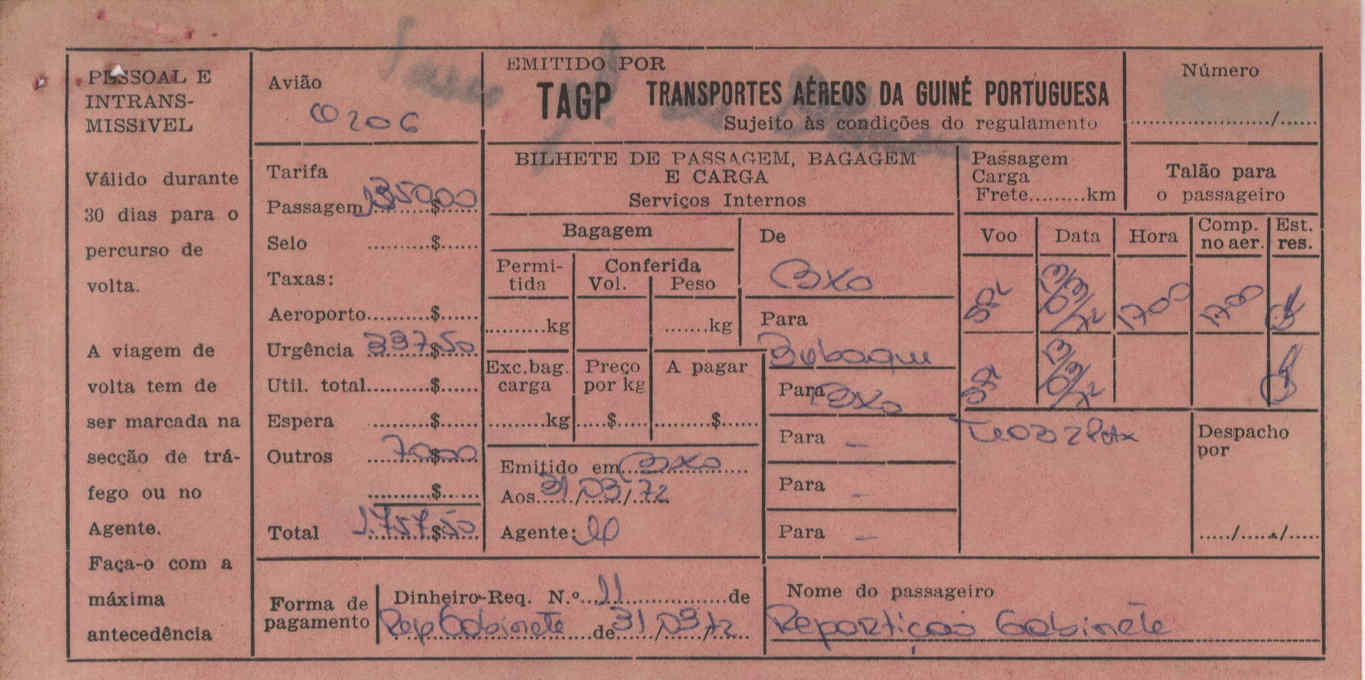 PESSOAL E
INTRANS-
MISSIVEL
Válido durante
30 dias para o
percurso de
volta.
A viagem de
volta tem de
ser marcada na
secção de trá-
fego ou no
Agente.
Faça-o com a
máxima
antecedência
Avião
C206
Tarifa
Passagem 1350$00
Selo ..........$......
Taxas:
Aeroporto..........$......
Urgência 337$50
Util. total..........$......
Espera ..........$......
Outros 70$00
..........$......
Total 1.757$50
EMITIDO POR
TAGP TRANSPORTES AÉREOS DA GUINÉ PORTUGUESA
Sujeito às condições do regulamento
Número
..................../......
BILHETE DE PASSAGEM, BAGAGEM
E CARGA
Serviços Internos
Passagem
Carga
Frete.........km
Talão para
o passageiro
Bagagem
Permi-
tida
Conferida
Vol. Peso
.........kg .......kg
Exc.bag.
carga
Preço
por kg
A pagar
.........kg .....$..... ........$......
Emitido em BXO
Aos 31/03/72
Agente:
De
BXO
Para
Bubaque
Para BXO
Para —
Para -
Para —
Voo Data Hora Comp.
no aer. Est.
res.
31/03/72 1700 1700
31/03/72
Despacho
por
...../...../.....
Forma de
pagamento
Dinheiro-Req. N.º 11 de
Rep Gabinete de 31/03/72
Nome do passageiro
Repartição Gabinete